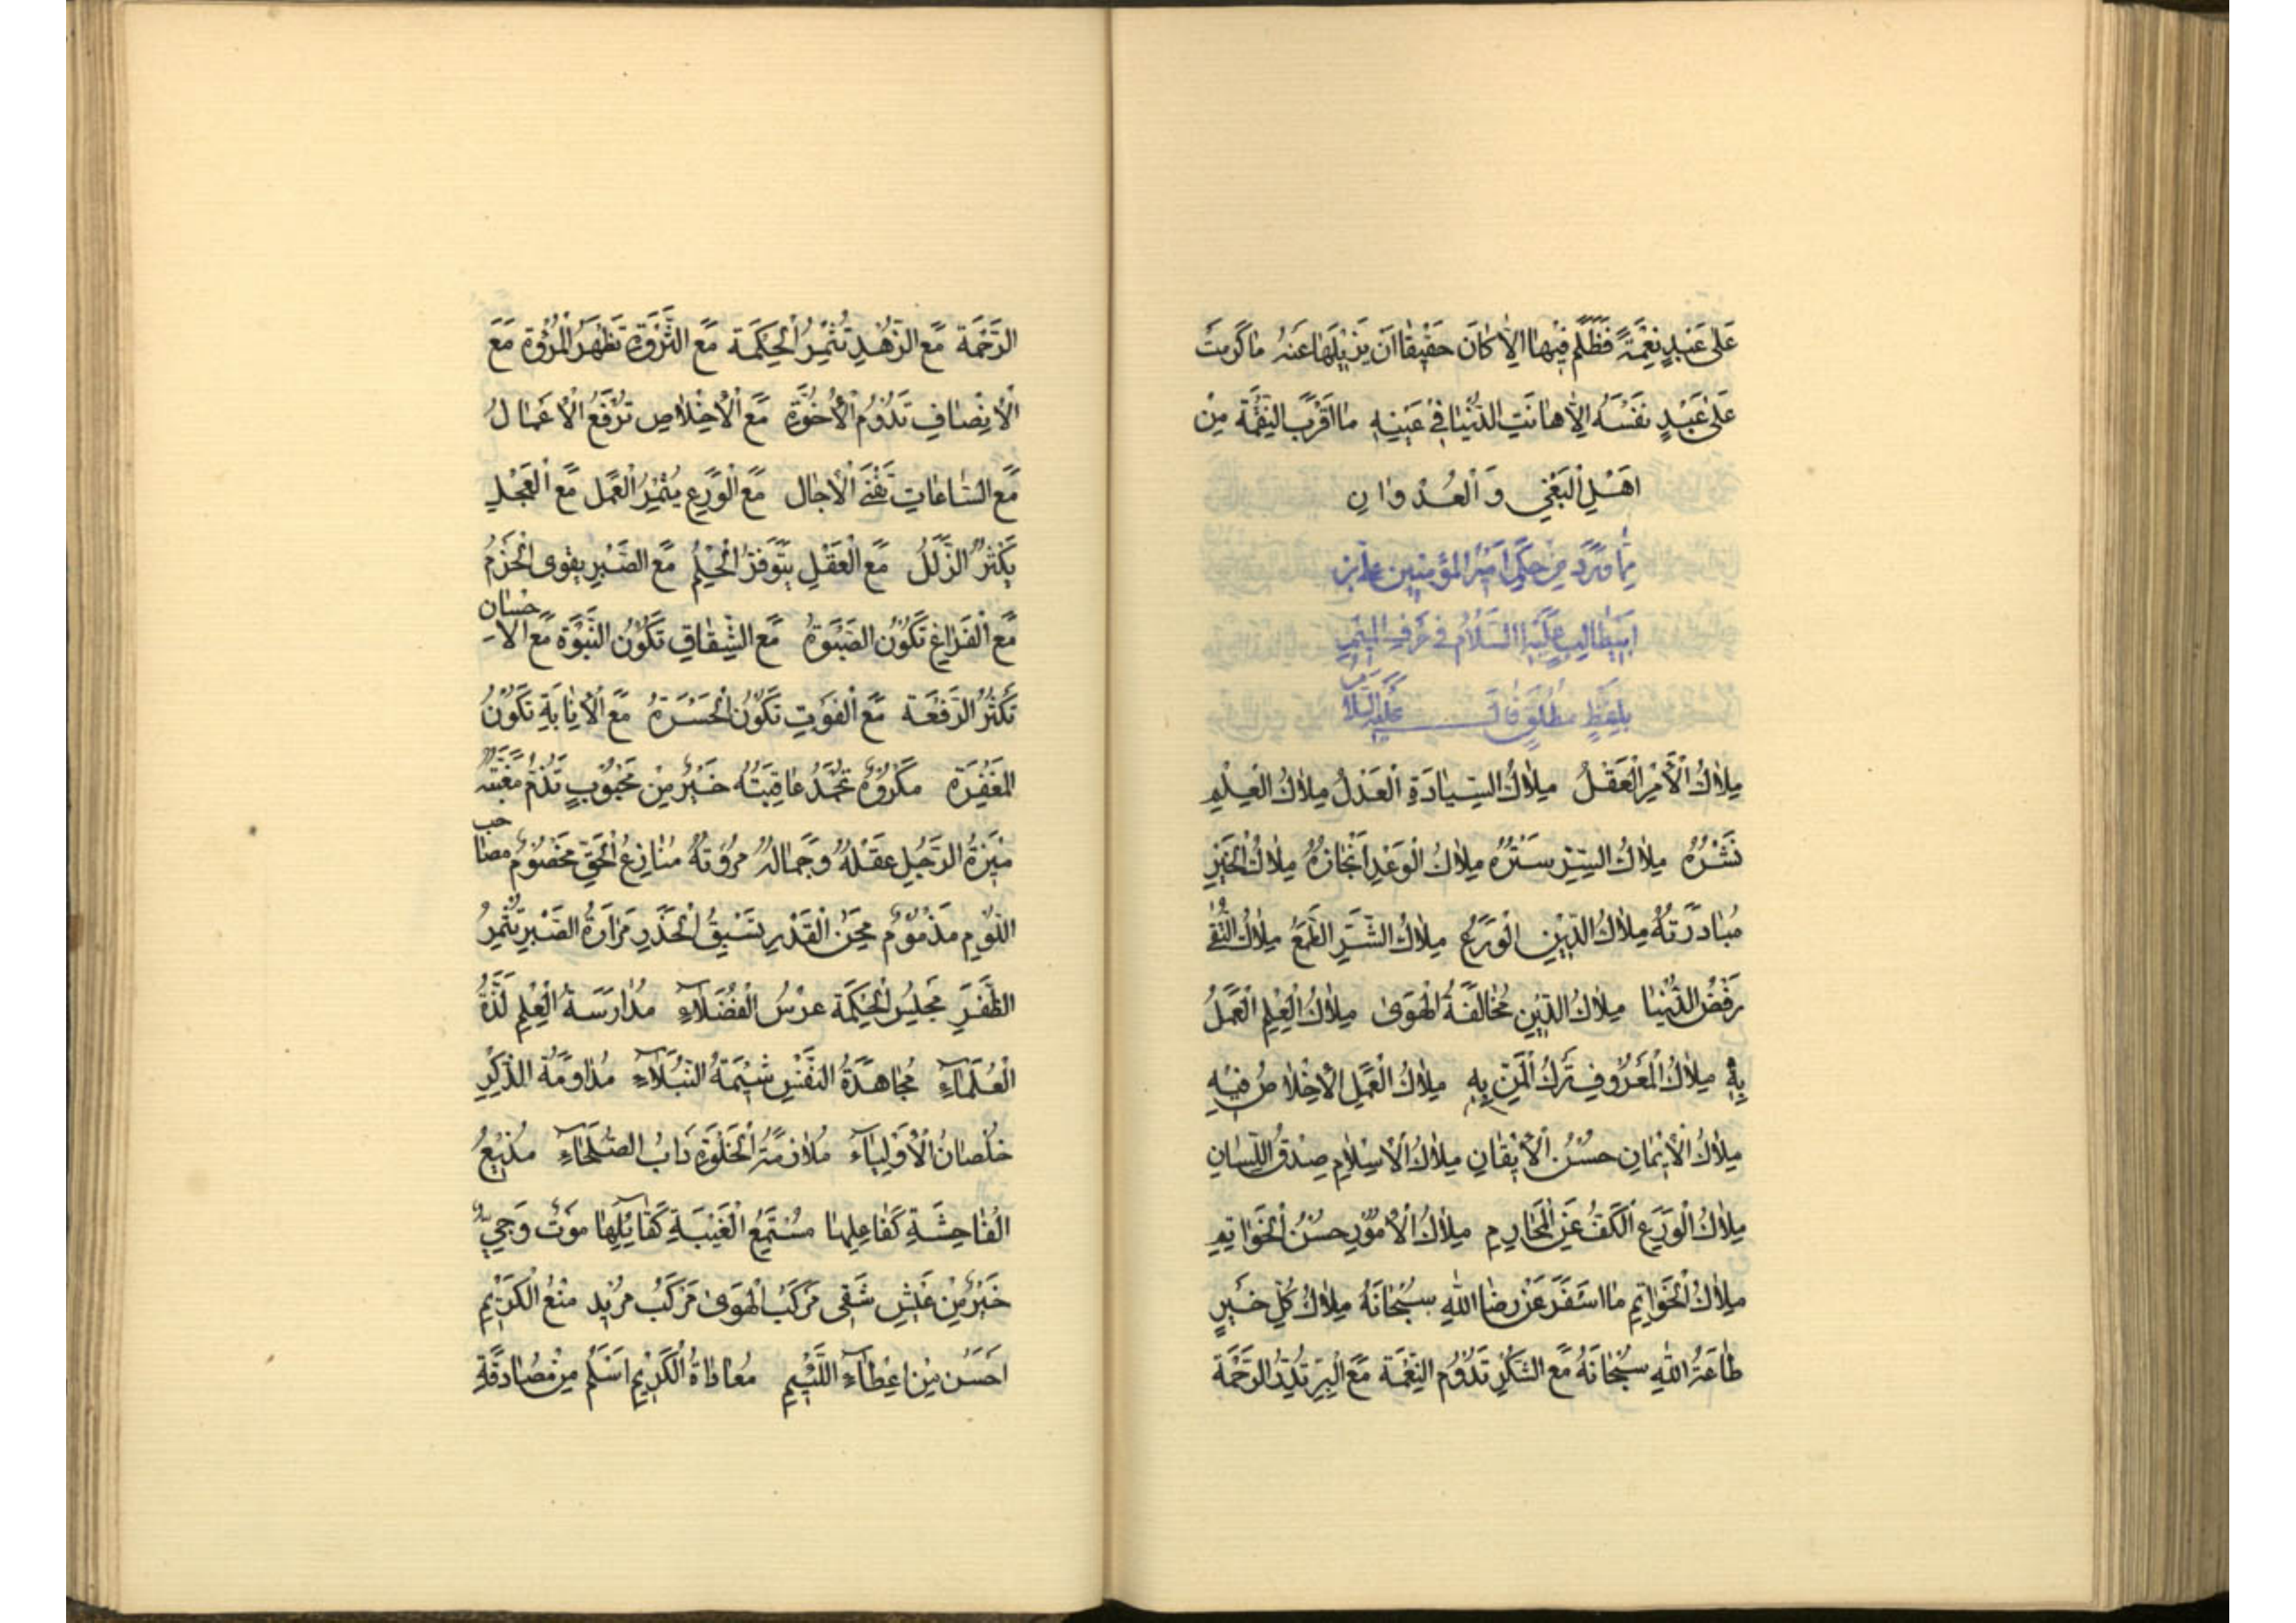 عَلىٰ عَبْدٍ نِعْمَةً فَظَلَمَ فِيْهٰا اِلاّٰ كٰانَ حَقيٖقًا اَنْ يُزيٖلَهٰا عَنْهُ مٰا كَرُمَتْ
عَلىٰ عَبْدٍ نَفْسُهُ اِلاّٰ هٰانَتِ الدُّنْيٰا فيٖ عَيْنِهِ مٰا اَقْرَبَ النِّقْمَةَ مِنْ
اَهْلِ الْبَغْىِ وَ الْعُدْوٰانِ
مِمّٰا وَرَدَ مِنْ حِكَمِ اَميٖرِ الْمُؤْمِنيٖنَ عَلىِّ بْنِ
اَبيٖطٰالِبٍ عَلَيْهِ السَّلاٰمُ فيٖ حَرْفِ الْميٖمِ
بِلَفْظٍ مُطْلَقٍ قٰالَ عَلَيْهِ السَّلاٰمُ
مِلاٰكُ الْاَمْرِ الْعَقْلُ مِلاٰكُ السِّيٰادَةِ الْعَدْلُ مِلاٰكُ الْعِلْمِ
نَشْرُهُ مِلاٰكُ السِّتْرِ سَتْرُهُ مِلاٰكُ الْوَعْدِ اِنْجٰازُهُ مِلاٰكُ الْخَيْرِ
مُبٰادَرَتُهُ مِلاٰكُ الدّيٖنِ الْوَرَعُ مِلاٰكُ الشَّرِّ الطَّمَعُ مِلاٰكُ التُّقىٰ
رَفْضُ الدُّنْيٰا مِلاٰكُ الدّيٖنِ مُخٰالَفَةُ الْهَوىٰ مِلاٰكُ الْعِلْمِ الْعَمَلُ
بِهِ مِلاٰكُ الْمَعْرُوْفِ تَرْكُ الْمَنِّ بِهِ مِلاٰكُ الْعَمَلِ الْاِخْلاٰصُ فيٖهِ
مِلاٰكُ الْايٖمٰانِ حُسْنُ الْايٖقٰانِ مِلاٰكُ الْاِسْلاٰمِ صِدْقُ اللِّسٰانِ
مِلاٰكُ الْوَرَعِ الْكَفُّ عَنِ الْمَحٰارِمِ مِلاٰكُ الْاُمُوْرِ حُسْنُ الْخَوٰاتِمِ
مِلاٰكُ الْخَوٰاتِمِ مٰا اَسْفَرَ عَنْ رِضَا اللّٰهِ سُبْحٰانَهُ مِلاٰكُ كُلِّ خَيْرٍ
طٰاعَةُ اللّٰهِ سُبْحٰانَهُ مَعَ الشُّكْرِ تَدُوْمُ النِّعْمَةُ مَعَ الْبِرِّ تُدِرُّ الرَّحْمَةُ
الرَّحْمَةُ مَعَ الزُّهْدِ تُثْمِرُ الْحِكْمَةُ مَعَ الثَّرْوَةِ تَظْهَرُ الْمُرُوَّةُ مَعَ
الْاِنْصٰافِ تَدُوْمُ الْاُخُوَّةُ مَعَ الْاِخْلاٰصِ تُرْفَعُ الْاَعْمٰالُ
مَعَ السّٰاعٰاتِ تَفْنَى الْاٰجٰالُ مَعَ الْوَرَعِ يُثْمِرُ الْعَمَلُ مَعَ الْعَجَلِ
يَكْثُرُ الزَّلَلُ مَعَ الْعَقْلِ يَتَوَفَّرُ الْحِلْمُ مَعَ الصَّبْرِ يَقْوَى الْحَزْمُ
مَعَ الْفَرٰاغِ تَكُوْنُ الصَّبْوَةُ مَعَ الشِّقٰاقِ تَكُوْنُ النَّبْوَةُ مَعَ الْاِحْسٰانِ
تَكْثُرُ الرَّفْعَةُ مَعَ الْفَوْتِ تَكُوْنُ الْحَسْرَةُ مَعَ الْاِنٰابَةِ تَكُوْنُ
الْمَغْفِرَةُ مَكْرُوْهٌ تُحْمَدُ عٰاقِبَتُهُ خَيْرٌ مِنْ مَحْبُوْبٍ تُذَمُّ مَغَبَّتُهُ
ميٖزَةُ الرَّجُلِ عَقْلُهُ وَ جَمٰالُهُ مُرُوَّتُهُ مُنٰازِعُ الْحَقِّ مَخْصُوْمٌ مُصٰاحِبُ
اللَّوْمِ مَذْمُوْمٌ مِحَنُ الْقَدَرِ تَسْبِقُ الْحَذَرَ مَرٰارَةُ الصَّبْرِ تُثْمِرُ
الظَّفَرَ مَجْلِسُ الْحِكْمَةِ عُرْسُ الْفُضَلاٰءِ مُدٰارَسَةُ الْعِلْمِ لَذَّةُ
الْعُلَمٰاءِ مُجٰاهَدَةُ النَّفْسِ شيٖمَةُ النُّبَلاٰءِ مُدٰاوَمَةُ الذِّكْرِ
خُلْصٰانُ الْاَوْلِيٰاءِ مُلاٰزَمَةُ الْخَلْوَةِ دَاْبُ الصُّلَحٰاءِ مُذيٖعُ
الْفٰاحِشَةِ كَفٰاعِلِهٰا مُسْتَمِعُ الْغيٖبَةِ كَقٰائِلِهٰا مَوْتٌ وَحِيٌّ
خَيْرٌ مِنْ عَيْشٍ شَقِيٍّ مَرْكَبُ الْهَوىٰ مَرْكَبٌ مُرْدٍ مَنْعُ الْكَريٖمِ
اَحْسَنُ مِنْ اِعْطٰاءِ اللَّئيٖمِ مُعٰادٰاةُ الْكَريٖمِ اَسْلَمُ مِنْ مُصٰادَقَةِ